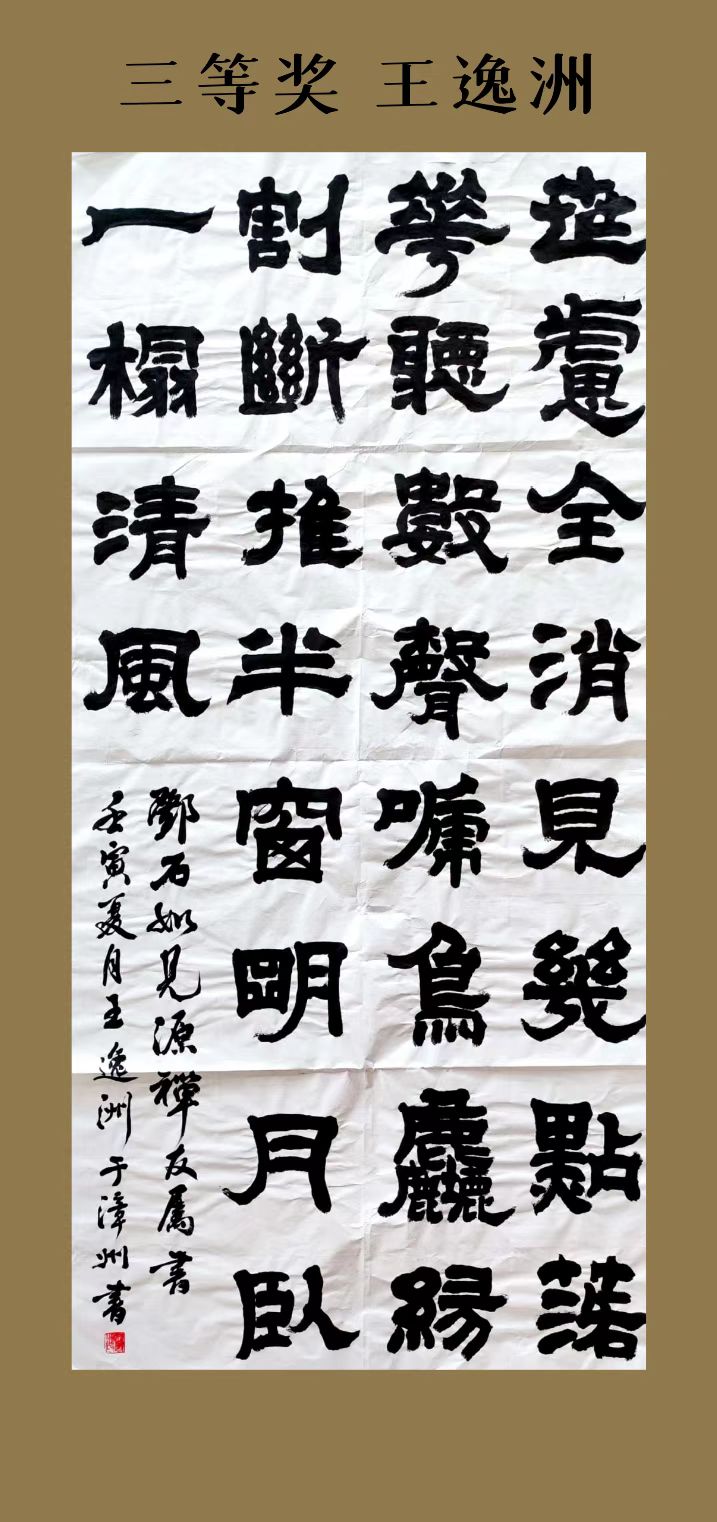 三等奖 王逸洲
世慮全消見幾點落
華聽數聲嗁鳥塵緣
割斷推半窗明月臥
一榻清風
鄧石如見源禪友屬書
壬寅夏月王逸洲于漳州書